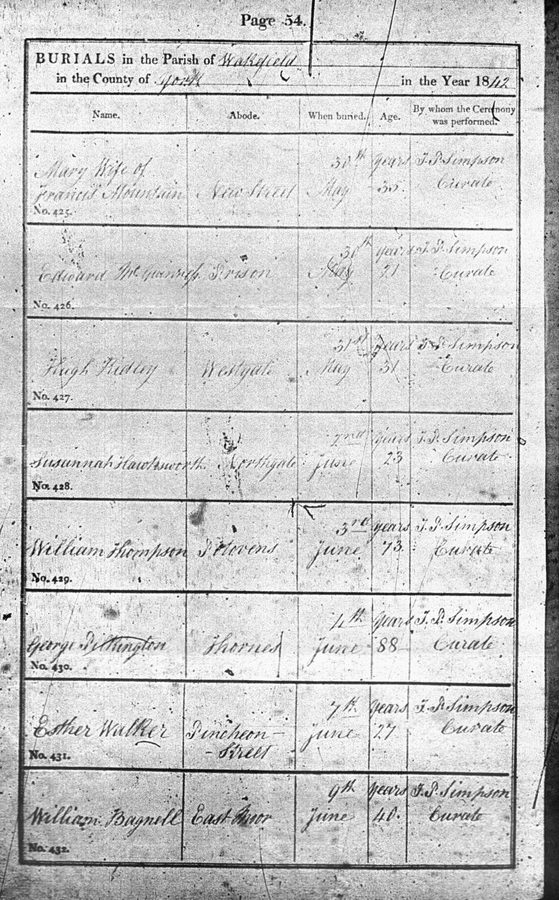 Page 54.
BURIALS in the Parish of Wakefield
in the County of York in the Year 1842
Name. Abode. When buried. Age. By whom the Ceremony was performed.
Mary Wife of 30th years J. P. Simpson
Francis Mountain New Street May 35 Curate
No. 425.
31st years J. P. Simpson
Edward Prison May 21 Curate
No. 426.
31st years J. P. Simpson
Hugh Ridley Westgate May 31 Curate
No. 427.
2nd years J. P. Simpson
Susannah Hawksworth Northgate June 23 Curate
No. 428.
3rd years J. P. Simpson
William Thompson June 73 Curate
No. 429.
4th years J. P. Simpson
George Pilkington Thornes June 88 Curate
No. 430.
7th years J. P. Simpson
Esther Walker Pincheon- June 27 Curate
-Street
No. 431.
9th years J. P. Simpson
William Bagnell East Moor June 40. Curate
No. 432.